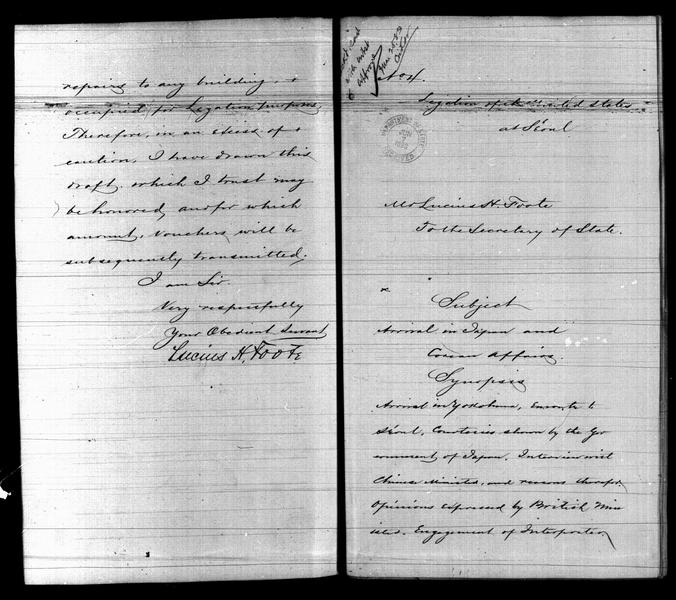 repairs to any building
occupied for Legation purposes.
Therefore, in an excess of
caution, I have drawn this
draft, which I trust may
be honored, and for which
amount, vouchers will be
subsequently transmitted.
I am Sir.
Very respectfully
Your Obedient Servant
Lucius H. Foote
No 4.
Legation of the United States
at Séoul
Mr Lucius H. Foote
To the Secretary of State.
Subject
Arrival in Japan and
Corean affairs.
Synopsis
Arrival in Yokohama, Enroute to
Séoul, Courtesies shown by the Gov
ernment of Japan. Interview with
Chinese Minister, and reasons therefor.
Opinions expressed by British Min
ister. Engagement of Interpreter